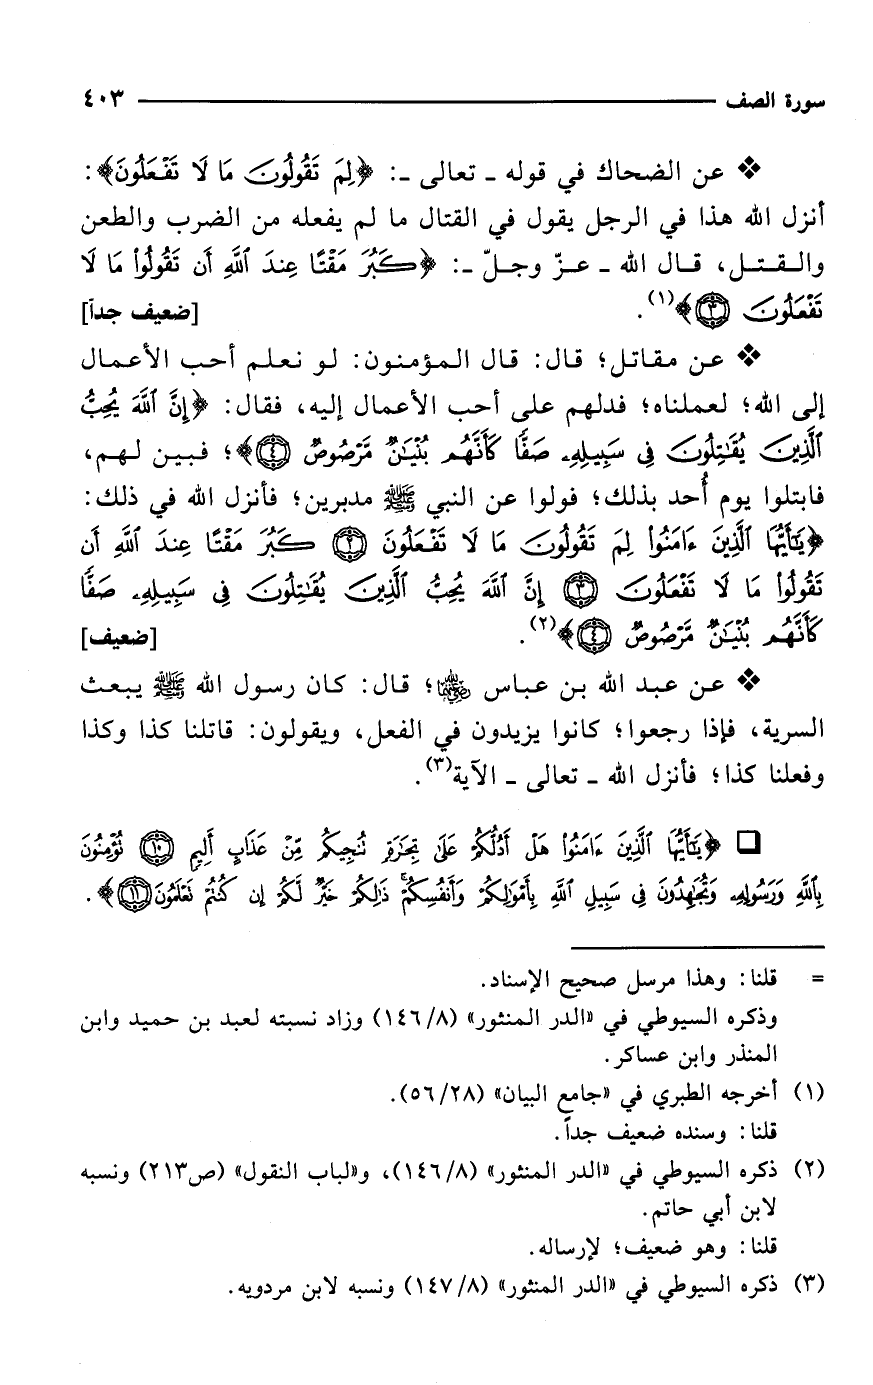 سورة الصف ٤٠٣
❖ عن الضحاك في قوله ـ تعالى ـ: ﴿لِمَ تَقُولُونَ مَا لَا تَفْعَلُونَ﴾:
أنزل الله هذا في الرجل يقول في القتال ما لم يفعله من الضرب والطعن
والـقـتـل، قـال الله ـ عـزّ وجـلّ ـ: ﴿كَبُرَ مَقْتًا عِندَ ٱللَّهِ أَن تَقُولُواْ مَا لَا
تَفْعَلُونَ ٣﴾(١). [ضعيف جداً]
❖ عن مقاتل؛ قال: قال المؤمنون: لو نعلم أحب الأعمال
إلى الله؛ لعملناه؛ فدلهم على أحب الأعمال إليه، فقال: ﴿إِنَّ ٱللَّهَ يُحِبُّ
ٱلَّذِينَ يُقَٰتِلُونَ فِى سَبِيلِهِۦ صَفًّا كَأَنَّهُم بُنْيَٰنٌ مَّرْصُوصٌ ٤﴾؛ فبين لهم،
فابتلوا يوم أُحد بذلك؛ فولوا عن النبي ﷺ مدبرين؛ فأنزل الله في ذلك:
﴿يَٰٓأَيُّهَا ٱلَّذِينَ ءَامَنُواْ لِمَ تَقُولُونَ مَا لَا تَفْعَلُونَ ٢ كَبُرَ مَقْتًا عِندَ ٱللَّهِ أَن
تَقُولُواْ مَا لَا تَفْعَلُونَ ٣ إِنَّ ٱللَّهَ يُحِبُّ ٱلَّذِينَ يُقَٰتِلُونَ فِى سَبِيلِهِۦ صَفًّا
كَأَنَّهُم بُنْيَٰنٌ مَّرْصُوصٌ ٤﴾(٢). [ضعيف]
❖ عن عبد الله بن عباس رضي الله عنهما؛ قال: كان رسول الله ﷺ يبعث
السرية، فإذا رجعوا؛ كانوا يزيدون في الفعل، ويقولون: قاتلنا كذا وكذا
وفعلنا كذا؛ فأنزل الله ـ تعالى ـ الآية(٣).
❑ ﴿يَٰٓأَيُّهَا ٱلَّذِينَ ءَامَنُواْ هَلْ أَدُلُّكُمْ عَلَىٰ تِجَٰرَةٍ تُنجِيكُم مِّنْ عَذَابٍ أَلِيمٍ ١٠ تُؤْمِنُونَ
بِٱللَّهِ وَرَسُولِهِۦ وَتُجَٰهِدُونَ فِى سَبِيلِ ٱللَّهِ بِأَمْوَٰلِكُمْ وَأَنفُسِكُمْ ۚ ذَٰلِكُمْ خَيْرٌ لَّكُمْ إِن كُنتُمْ تَعْلَمُونَ ١١﴾.
= قلنا: وهذا مرسل صحيح الإسناد.
وذكره السيوطي في «الدر المنثور» (٨/ ١٤٦) وزاد نسبته لعبد بن حميد وابن
المنذر وابن عساكر.
(١) أخرجه الطبري في «جامع البيان» (٢٨/ ٥٦).
قلنا: وسنده ضعيف جداً.
(٢) ذكره السيوطي في «الدر المنثور» (٨/ ١٤٦)، و«لباب النقول» (ص٢١٣) ونسبه
لابن أبي حاتم.
قلنا: وهو ضعيف؛ لإرساله.
(٣) ذكره السيوطي في «الدر المنثور» (٨/ ١٤٧) ونسبه لابن مردويه.